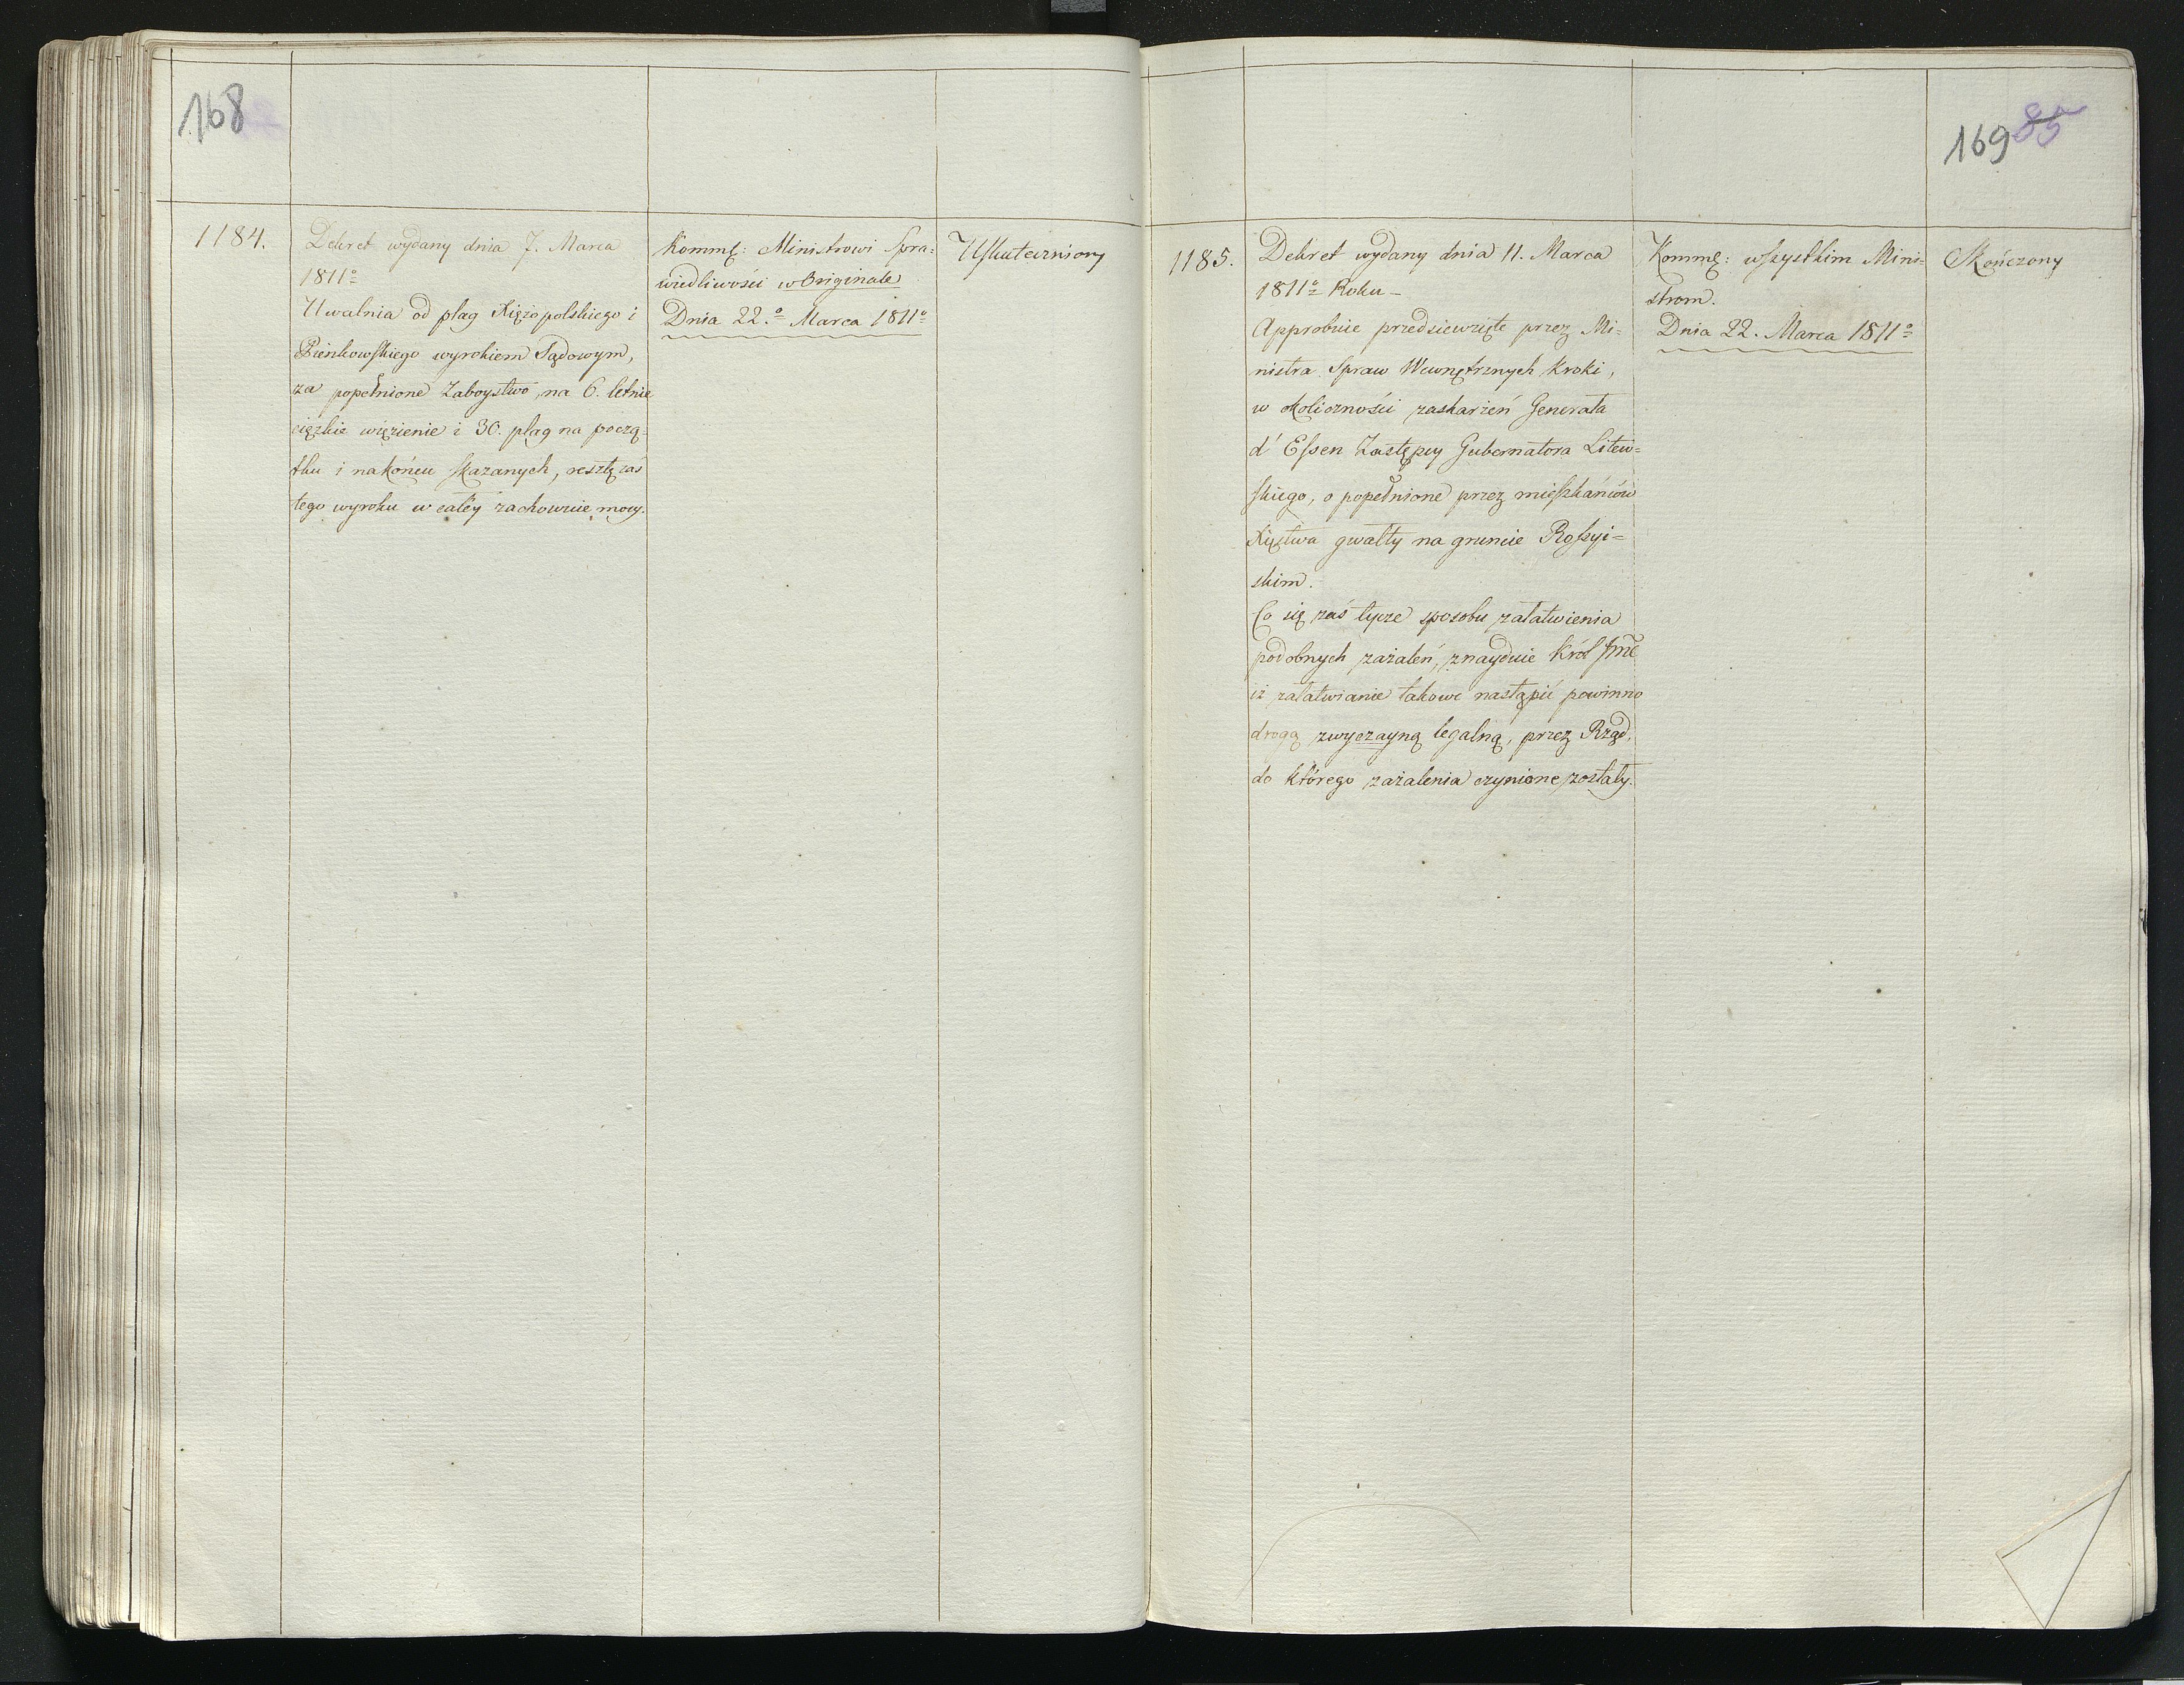 168
1184.
Dekret wydany dnia 7. Marca
1811º
Uwalnia od plag Xięzopolskiego i
Pieńkowskiego wyrokiem Sądowym,
za popełnione Zaboystwo, na 6. letnie
cięzkie więzienie i 30. plag na począ-
tku i na końcu skazanych, resztę zaś
tego wyroku w całéy zachowuie mocy.
Kommę: Ministrowi Spra=
wiedliwości w Originale
Dnia 22.º Marca 1811º
Uskuteczniony
169 85
1185.
Dekret wydany dnia 11. Marca
1811º Roku –
Approbuie przedsiewzięte przez Mi-
nistra Spraw Wewnętrznych Kroki,
w okoliczności zaskarżeń Generała
d'Essen Zastępcy Gubernatora Litew=
skiego, o popełnione przez mieszkańców
Xięstwa gwałty na gruncie Rossyi=
skim.
Co się zaś tycze sposobu załatwienia
podobnych zażaleń, znayduie Król Jmć
iż załatwianie takowe nastąpić powinno
drogą zwyczayną legalną, przez Rząd,
do którego zażalenia czynione zostały.
Kommę: wszystkim Mini-
strom.
Dnia 22. Marca 1811º
Skończony